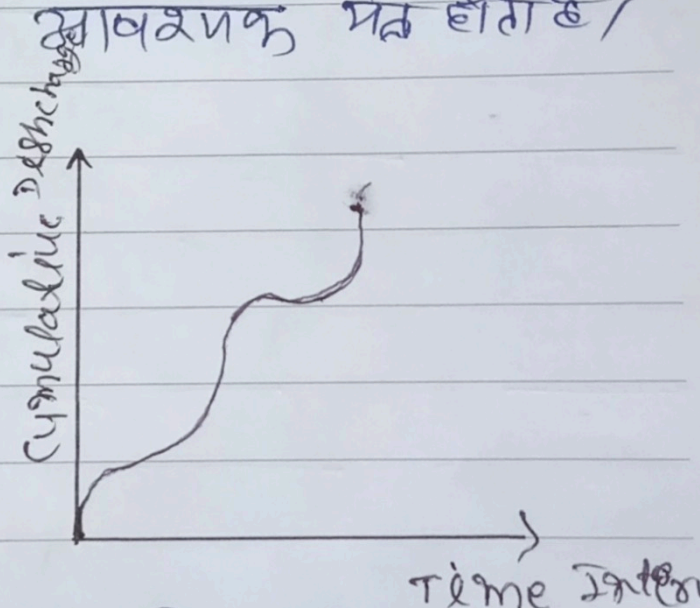 आवश्यक होता है /
Cumulative Deshcharge
Time Inter